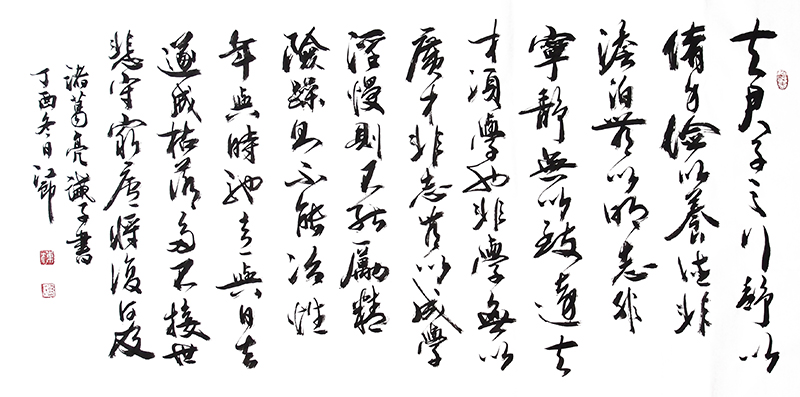 夫君子之行靜以
脩身儉以養德非
澹泊無以明志非
寧靜無以致遠夫
才須學也非學無以
廣才非志無以成學
淫慢則不能勵精
險躁則不能冶性
年與時馳意與日去
遂成枯落多不接世
悲守窮廬將復何及
諸葛亮誡子書
丁酉冬日